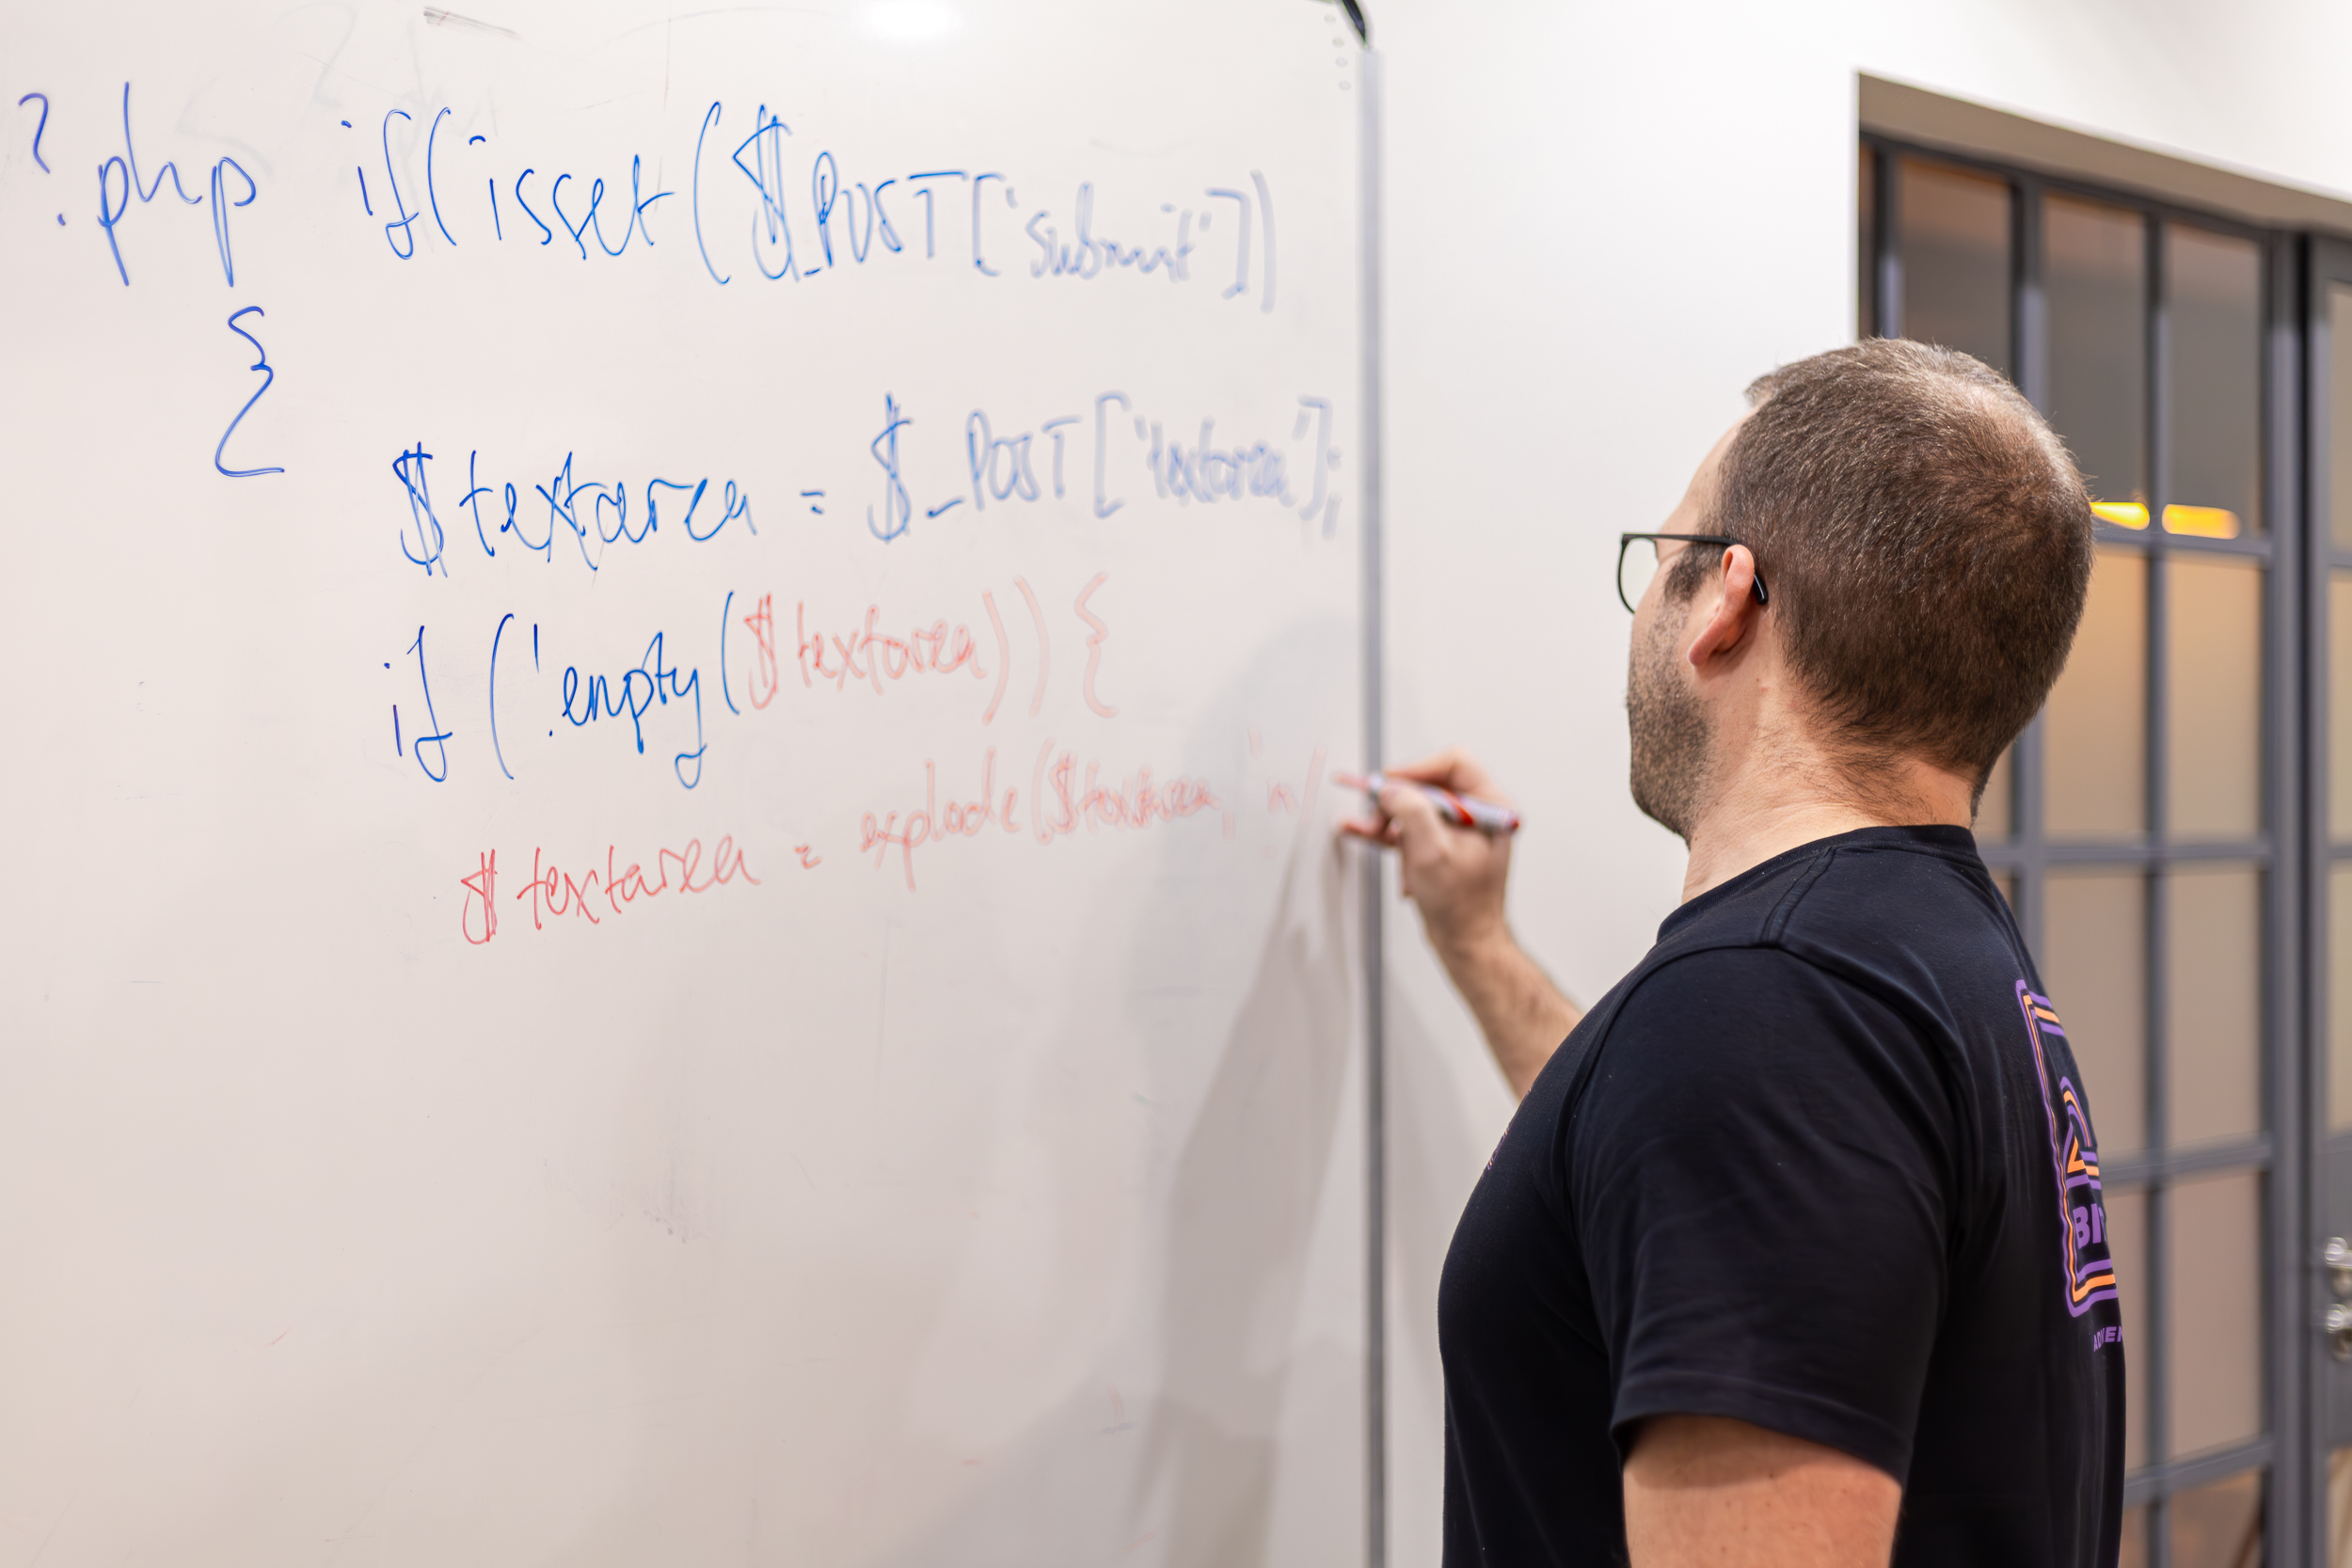 ?php if(isset($_POST['submit'])
{
$textarea = $_POST['textarea'];
if (!empty($textarea)) {
$textarea = explode($textarea,
BI